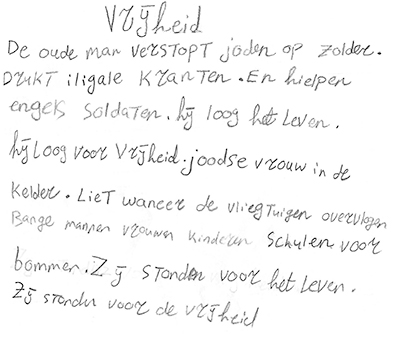 Vrijheid
De oude man verstopt joden op zolder.
Drukt iligale kranten. En hielpen
engels soldaten. hij loog het leven.
hij loog voor Vrijheid. joodse vrouw in de
kelder. Liet waneer de vliegtuigen overvlogen
Bange mannen vrouwen kinderen schulen voor
bommen. Zij stonden voor het leven.
Zij stonden voor de vrijheid